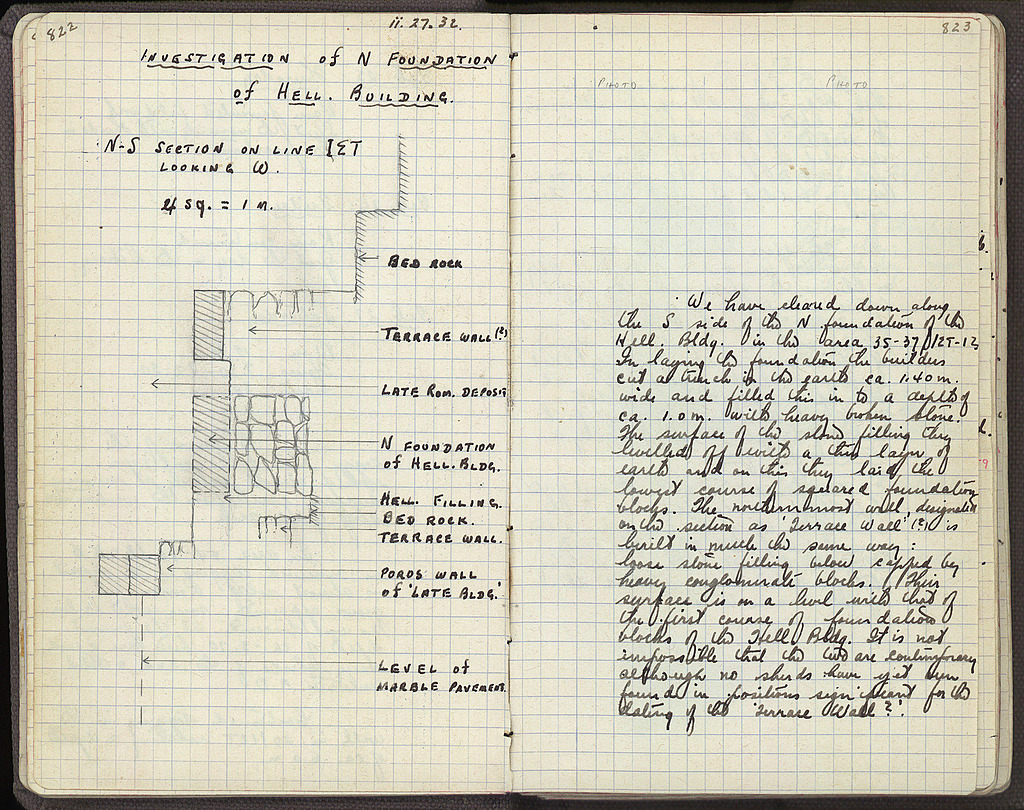 822
ii. 27. 32.
INVESTIGATION of N FOUNDATION
of HELL. BUILDING.
N-S SECTION ON LINE ΙΣΤ
LOOKING W.
4 sq. = 1 M.
BED ROCK
TERRACE WALL (?)
LATE ROM. DEPOSIT
N FOUNDATION
of HELL. BLDG.
HELL. FILLING.
BED ROCK.
TERRACE WALL.
POROS WALL
of 'LATE BLDG.'
LEVEL of
MARBLE PAVEMENT.
823
PHOTO PHOTO
We have cleared down along
the S side of the N foundation of the
Hell. Bldg. in the area 35-37
In laying the foundation the builders
cut a trench in the earth ca. 1.40 m.
wide and filled this in to a depth of
ca. 1.0 m. with heavy broken stone.
The surface of the stone filling they
levelled off with a thin layer of
earth and on this they laid the
lowest course of squared foundation
blocks. The northernmost wall, designated
on the section as 'Terrace Wall' (?) is
built in much the same way:
loose stone filling below capped by
heavy conglomerate blocks. Their
surface is on a level with that of
the first course of foundation
blocks of the Hell. Bldg. It is not
impossible that the two are contemporary
although no sherds have yet been
found in positions significant for the
dating of the 'Terrace Wall?'.